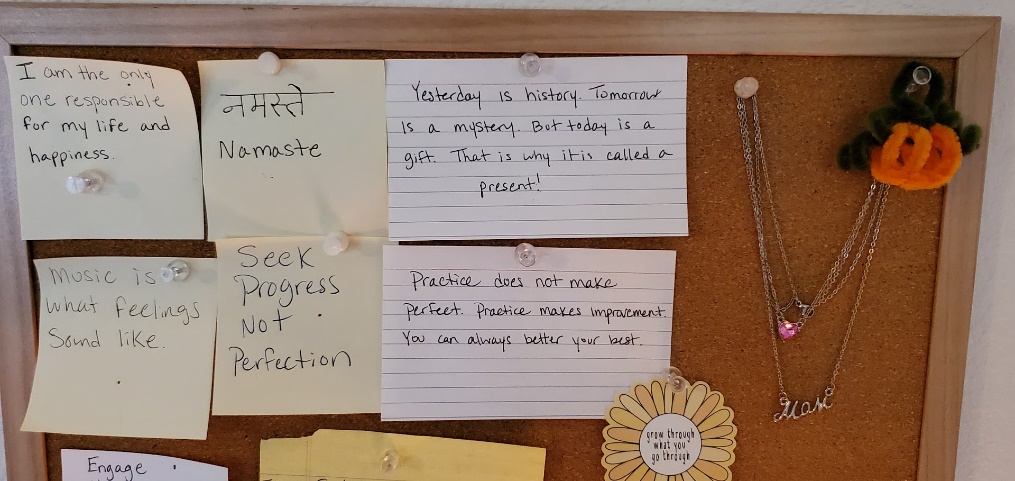 I am the only
one responsible
for my life and
happiness.
नमस्ते
Namaste
Yesterday is history. Tomorrow
is a mystery. But today is a
gift. That is why it is called a
present!
Music is
what feelings
Sound like.
Seek
Progress
Not
Perfection
Practice does not make
perfect. Practice makes improvement.
You can always better your best.
grow through
what you
go through
Mom
Engage